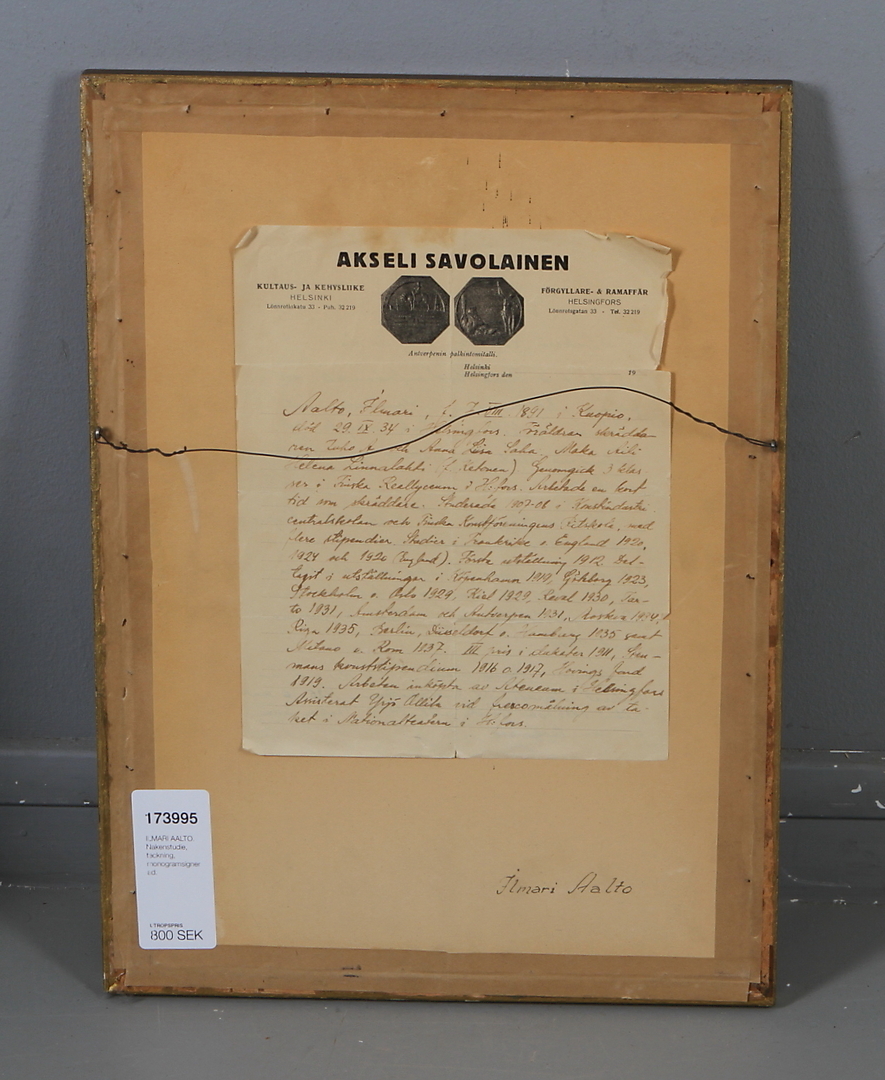 AKSELI SAVOLAINEN
KULTAUS- JA KEHYSLIIKE
HELSINKI
Lönnrotinkatu 33 - Puh. 32 219
FÖRGYLLARE- & RAMAFFÄR
HELSINGFORS
Lönnrotsgatan 33 - Tel. 32 219
Antverpenin palkintomitalli.
Helsinki
Helsingfors den 19
Aalto, Ilmari, f. 7. VIII. 1891 i Kuopio,
död 29. IX. 34 i Helsingfors. Föräldrar skrädda-
ren Juho A. Anna Lisa Maka Aili
Helena Linnalahti (f. Ketonen) Genomgick 3 klas-
ser i Finska Reallyceum i H:fors. Arbetade en kort
tid som skräddare. Studerade 07-08 i Konstindustri
centralskolan och Finska Konstföreningens Ritskola, med
flere stipendier. Studier i Frankrike o. England 1920,
1924 och 1926 (England). Första utställning 1912. Del-
tagit i utställningar i Köpenhamn 1919, Göteborg 1923,
Stockholm o. Oslo 1929, Kiel 1929, Reval 1930, Tar-
to 1931, Amsterdam och Antwerpen 1931, Moskva 1934,
Riga 1935, Berlin, Düseldorf o. Hamburg 1935 samt
Milano o. Rom 1937. III pris i plakater 1911, Sten-
mans konststipendium 1916 o 1917, Hovings fond
1919. Arbeten inköpta av Ateneum i Helsingfors
Assisterat Yrjö Ollila vid frescomålning av ta-
ket i Nationalteatern i H:fors.
Ilmari Aalto
173995
ILMARI AALTO
Nakenstudie,
teckning,
monogramsigner
ad.
UTROPSPRIS
800 SEK